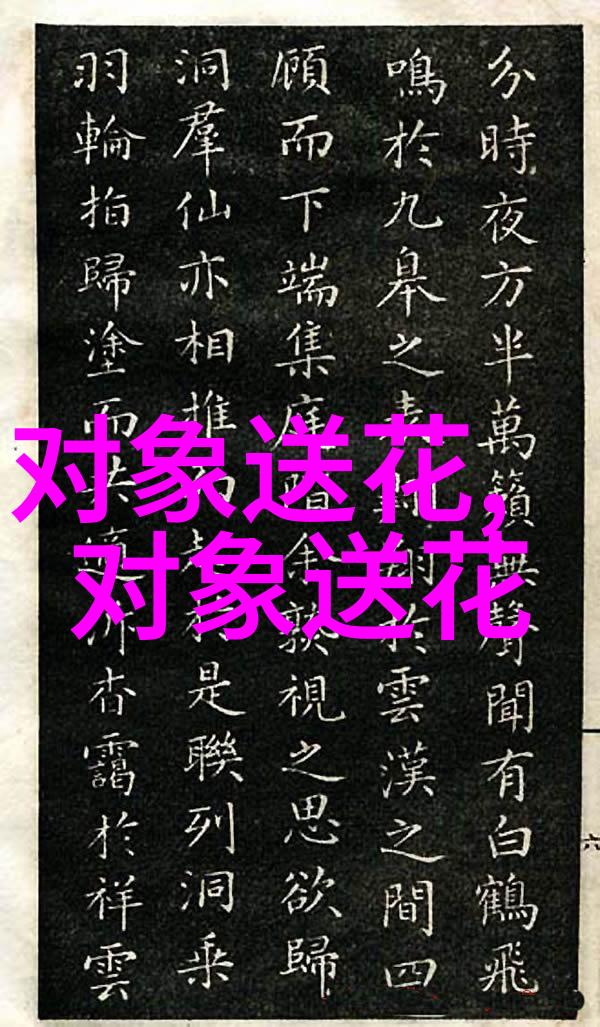 对象送花，
对象送花
分時夜方半萬籟無聲聞有白鶴飛
鳴於九皋之於雲漢之間四
顧而下端集庭階余視之思欲歸
洞羣仙亦相推是聯列洞乘
羽輪指歸塗而杳靄於祥雲
六